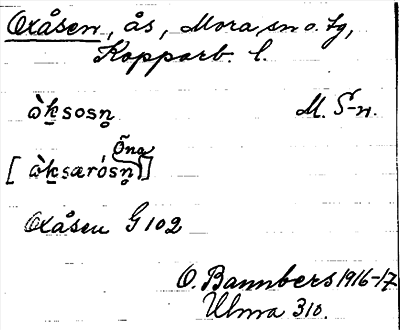 Oxåsen, ås, Mora sn o. tg,
Kopparb. l.
ò̱ksosn̥ M. S-n.
Öna
[ò̱ksærósn̥]
Oxåsen G 102
O. Bannbers 1916-17
Ulma 310.